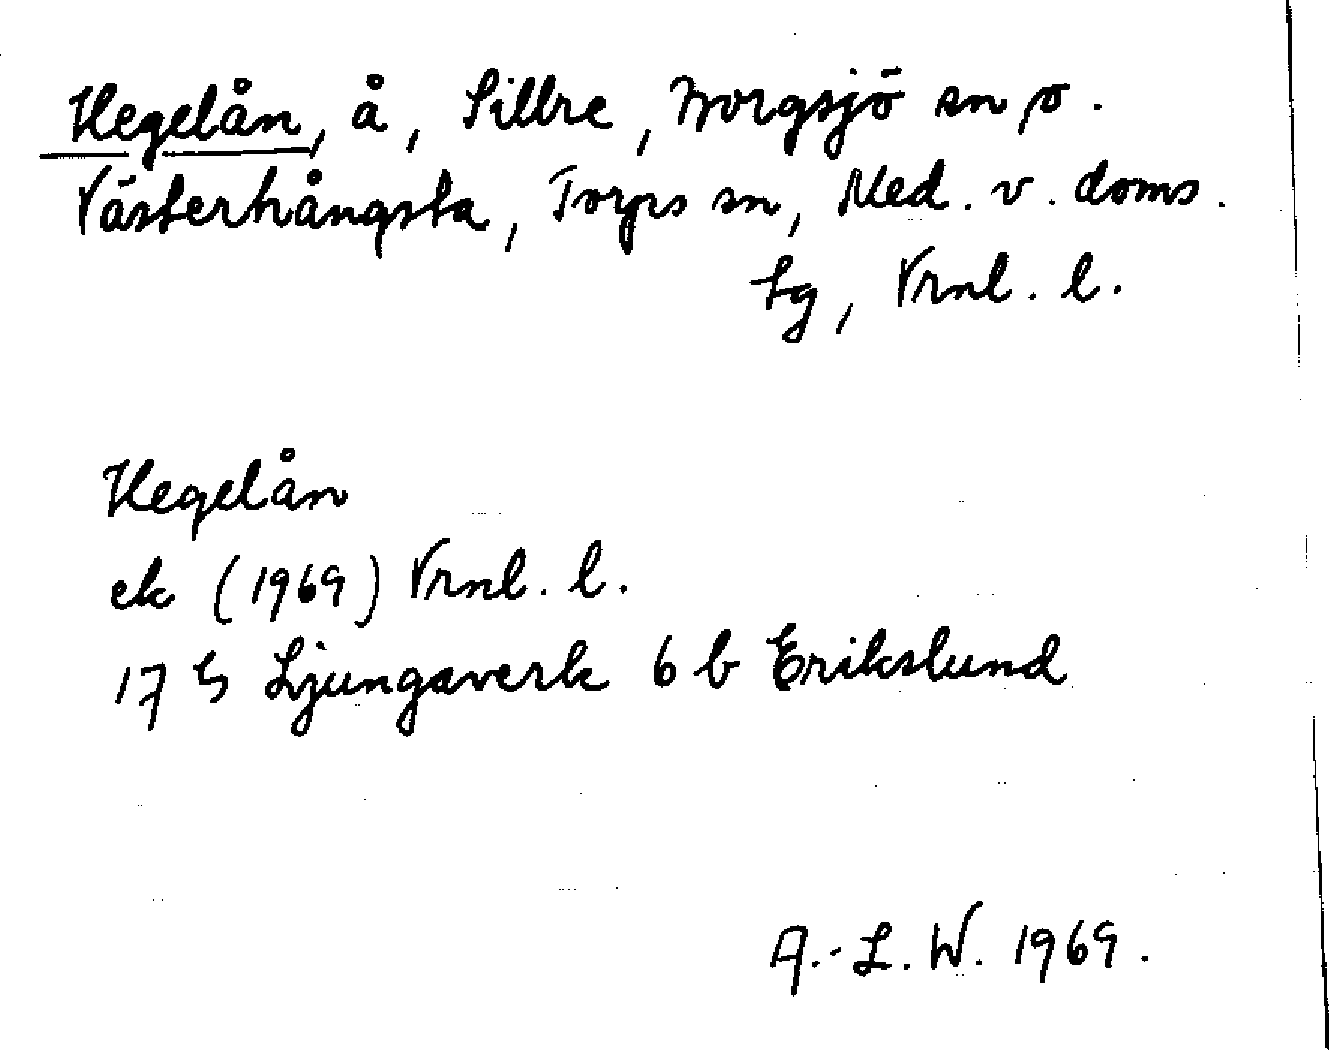 Hegelån, å, Sillre, Borgsjö sn o.
Västerhångsta, Torps sn, Med. v. doms.
tg, Vrnl. l.
Hegelån
ek (1969) Vrnl. l.
17 G Ljungaverk 6 b Erikslund
A.-L. W. 1969.